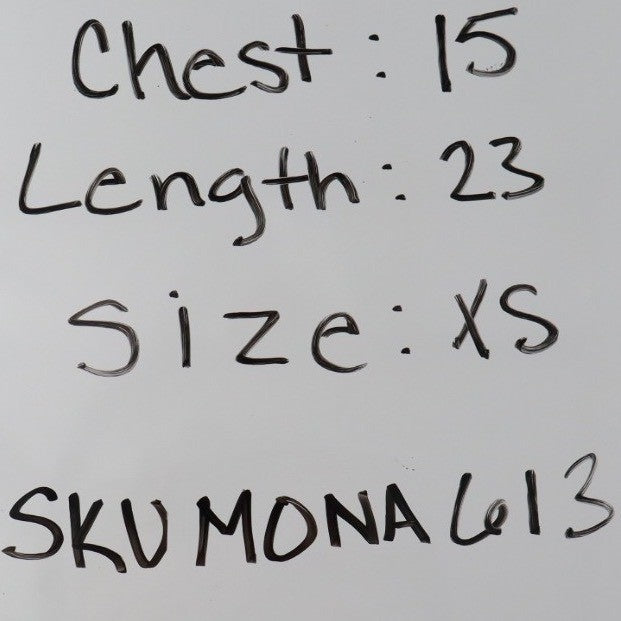 Chest: 15
Length: 23
Size: XS
SKU MONA 613